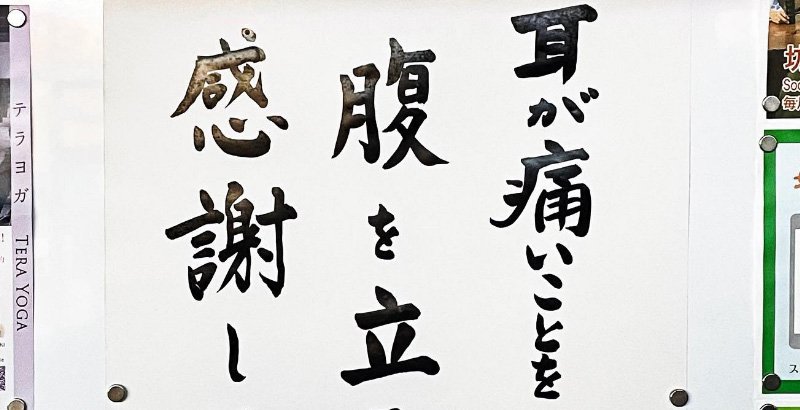 耳が痛いことを
腹を立
感謝し
テラヨガ TERA YOGA
坊
Soc
毎
ス